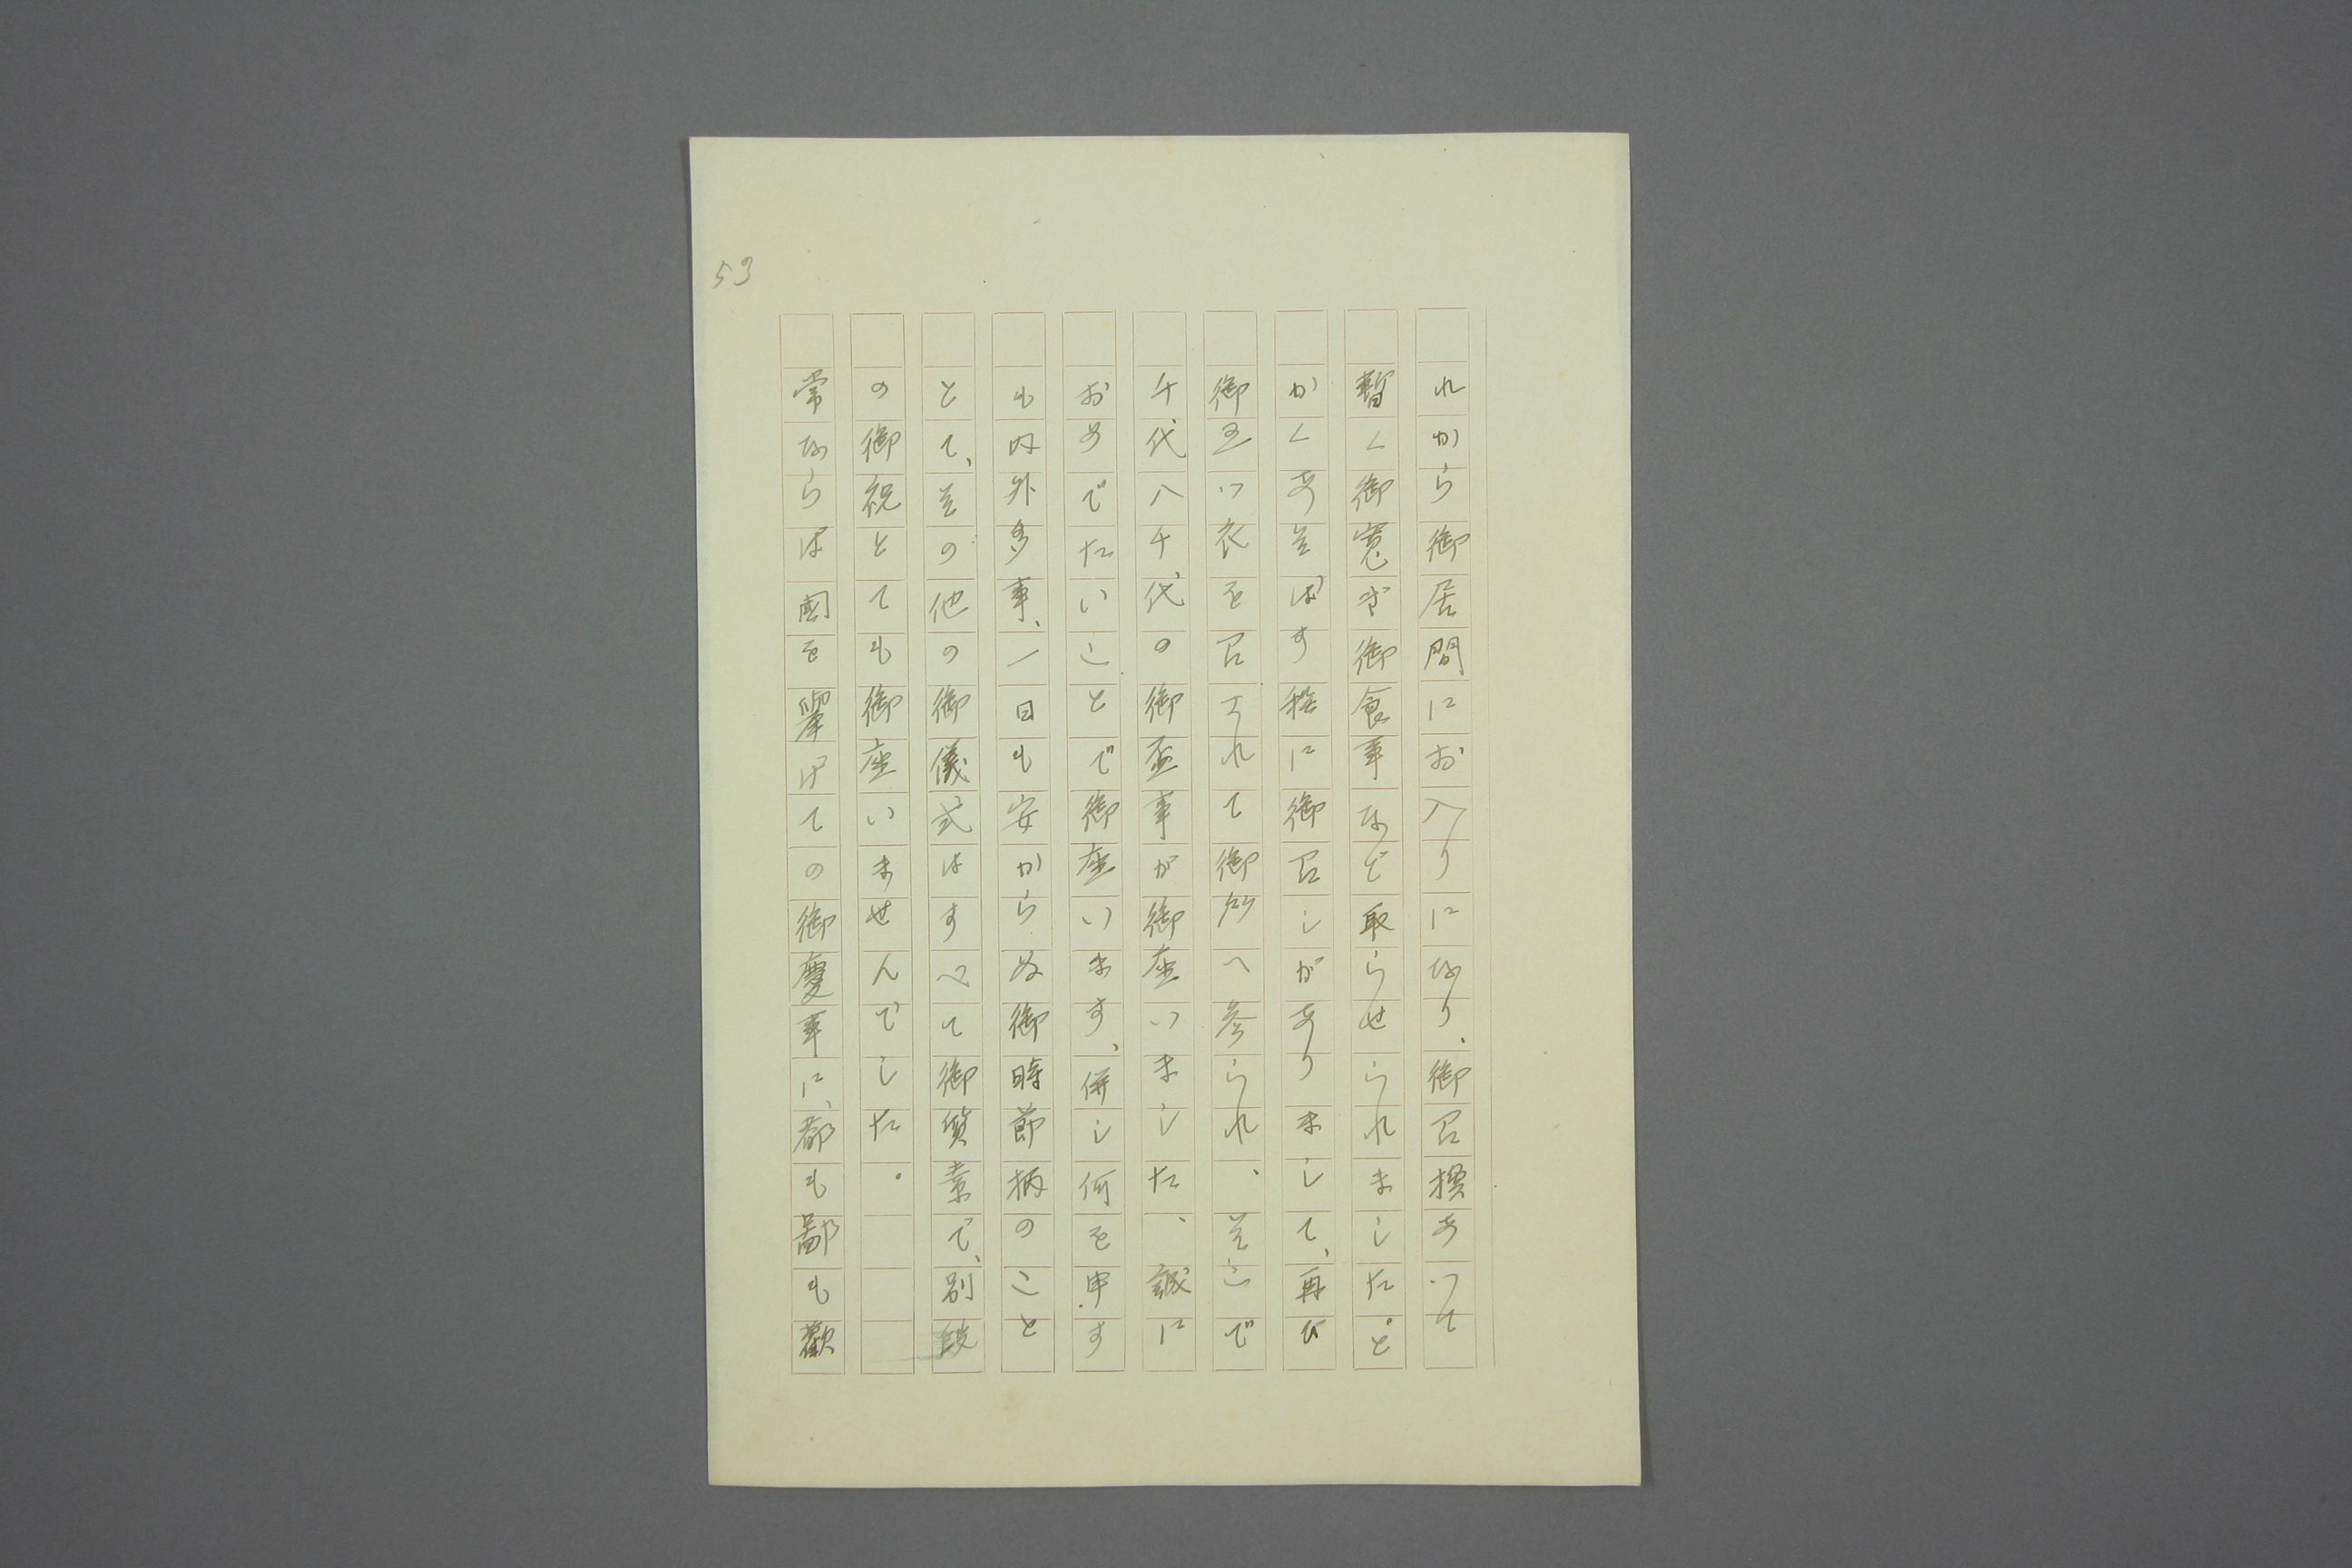 れから御居間にお入りになり、御召換あつて
暫く御寛ぎ御食事など取らせられました。と
かくあそばす程に御召しがありまして、再び
御五ツ衣を召されて御所へ参られ、そこで
千代八千代の御盃事が御座いました、誠に
おめでたいことで御座います、併し何を申す
も内外多事、一日も安からぬ御時節柄のこと
とて、その他の御儀式はすべて御質素で、別段
の御祝とても御座いませんでした。
常ならば国を挙げての御慶事に、都も鄙も歓
53